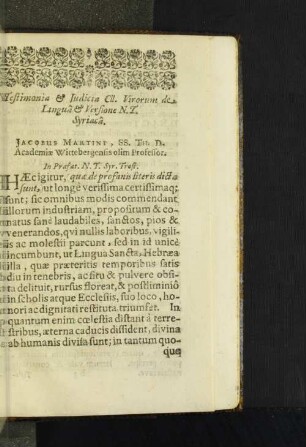 Testimonia & Iudicia Cll. Virorum de
Linguâ & Versione N.T.
Syriacâ.
JACOBUS MARTINI, SS. TH. D.
Academiæ Wittebergensis olim Professor.
In Præfat. N. T. Syr. Trost.
HÆc igitur, quæ de profanis literis dicta
sunt, ut longè verissima certissimaq;
sunt; sic omnibus modis commendant
illorum industriam, propositum & co-
natus sanè laudabiles, sanctos, pios &
venerandos, qui nullis laboribus, vigili-
is ac molestiis parcunt, sed in id unicè
incumbunt, ut Lingua Sancta, Hebræa
illa, quæ præteritis temporibus satis
diu in tenebris, ac situ & pulvere obsi-
ta delituit, rursus floreat, & postliminiò
in scholis atque Ecclesiis, suo loco, ho-
nori ac dignitati restituta triumfet. In
quantum enim cœlestia distant à terre-
stribus, æterna caducis dissident, divina
ab humanis divisa sunt; in tantum quo-
que